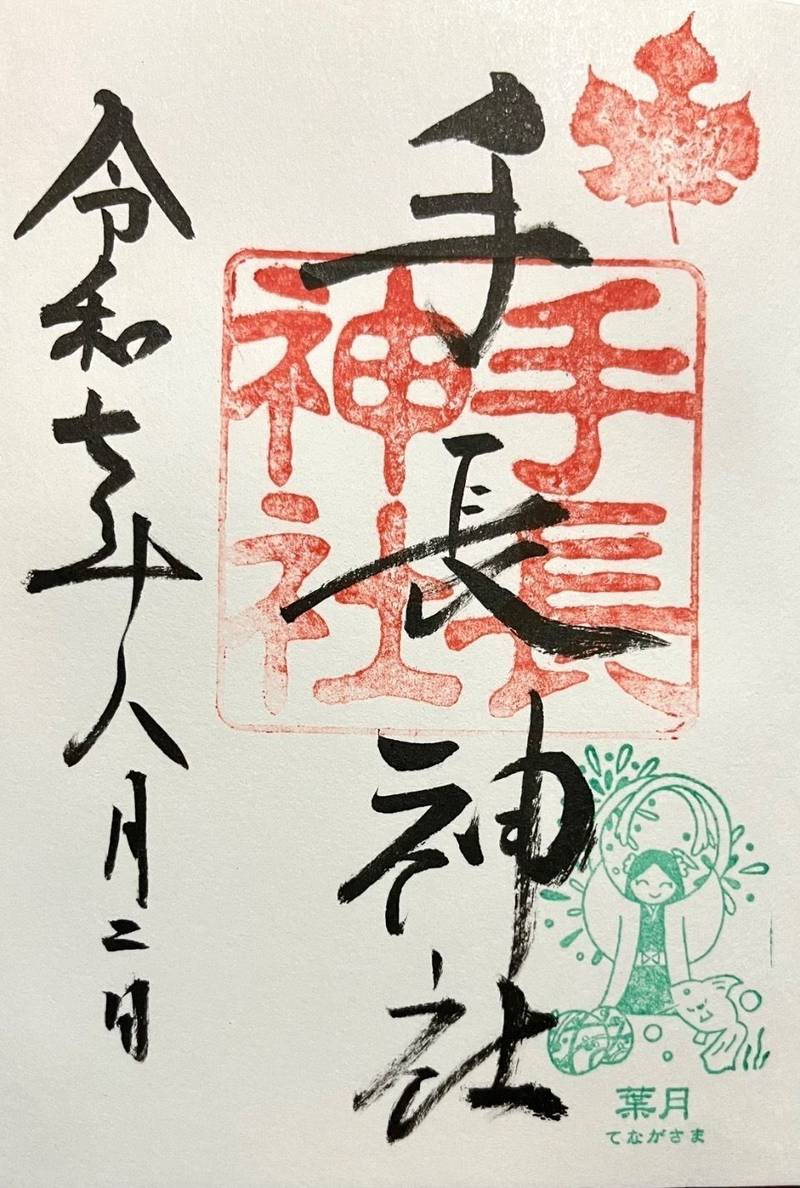 手長神社
手長
神社
令和七年八月二日
葉月
てながさま